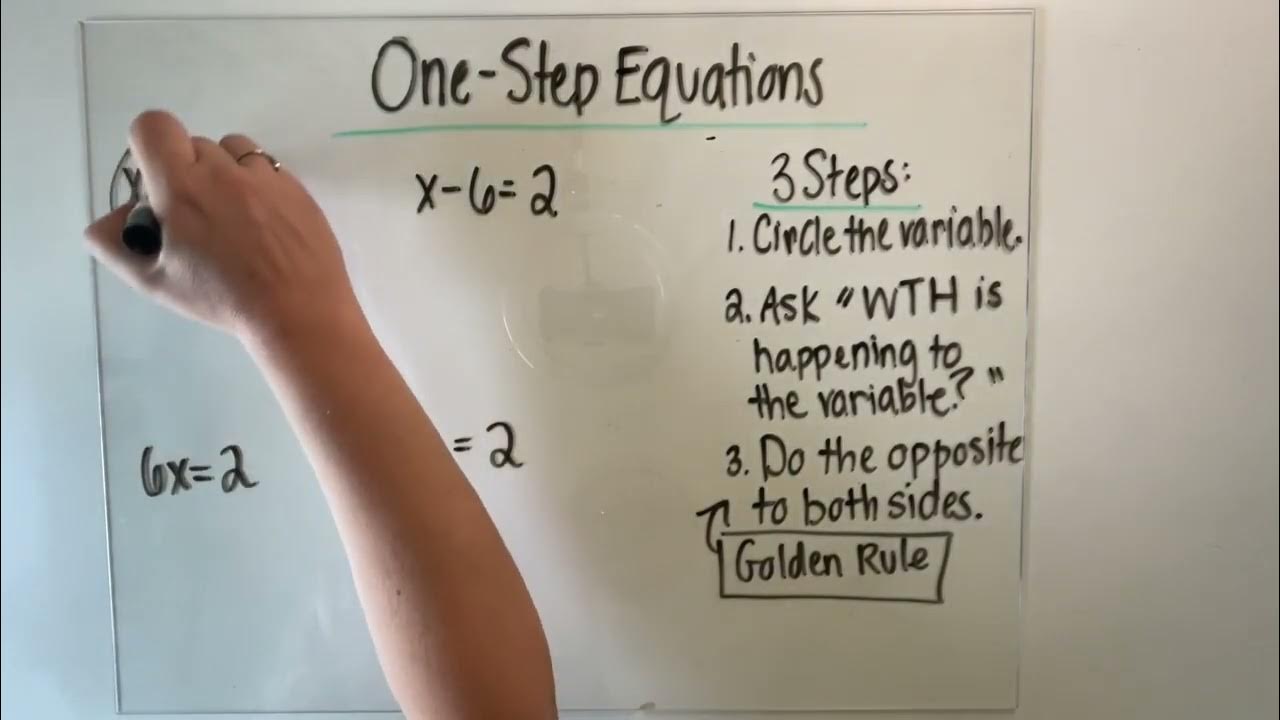 One-Step Equations
x
x-6=2
6x=2
=2
3 Steps:
1. Circle the variable.
2. Ask "WTH is
happening to
the variable?"
3. Do the opposite
to both sides.
Golden Rule